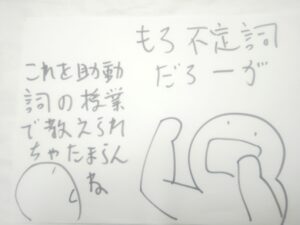 もろ不定詞
だろーが
これを助動
詞の授業
で教えられ
ちゃたまらん
ね